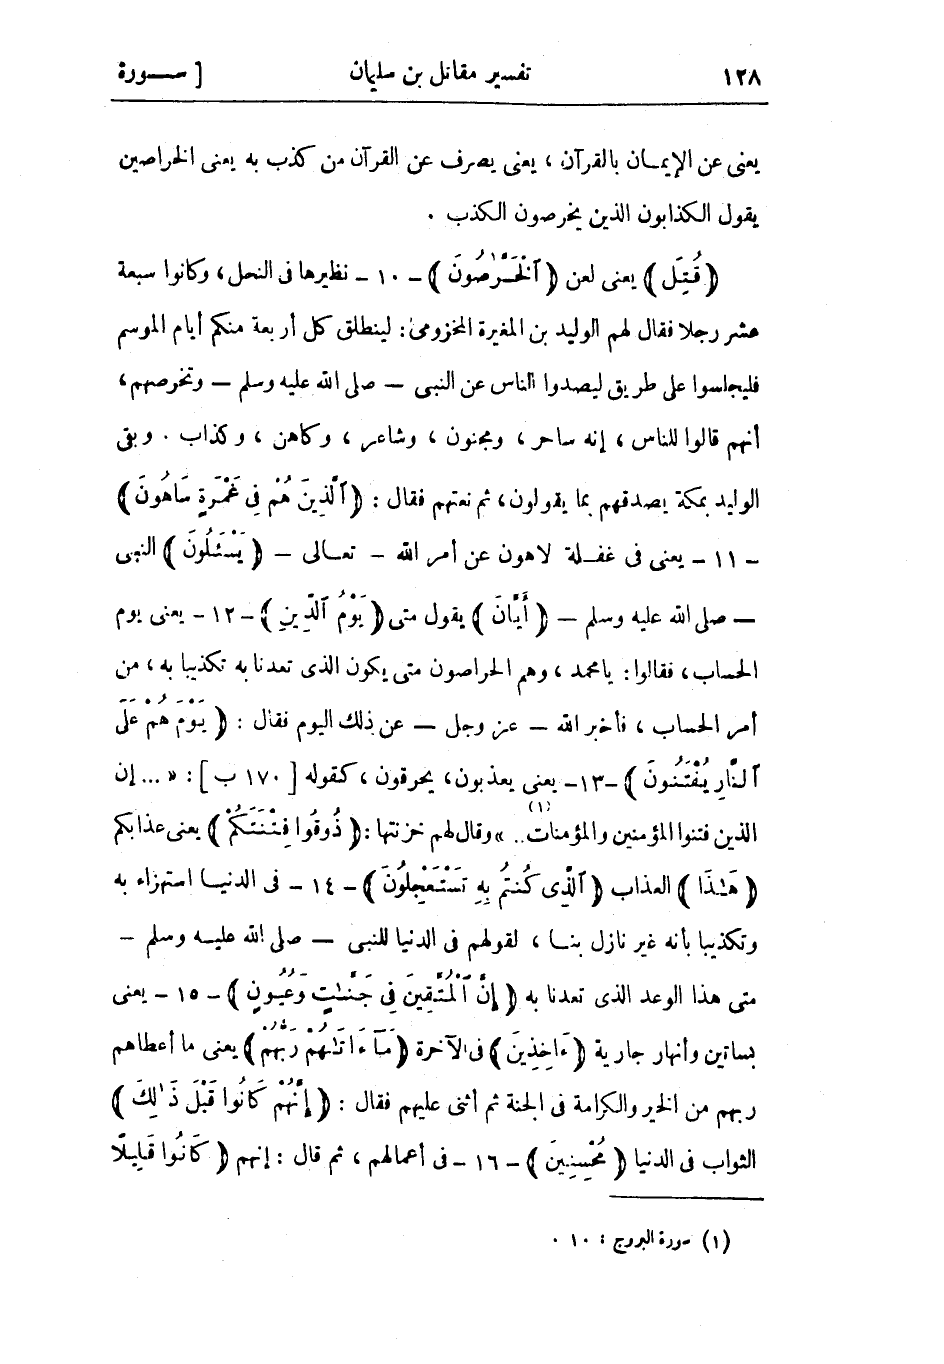 ١٢٨ تفسير مقاتل بن سليمان [ سـورة
يعنى عن الإيمـان بالقرآن ، يعنى يصرف عن القرآن من كذب به يعنى الخراصين
يقول الكذابون الذين يخرصون الكذب .
﴿ قُتِلَ ﴾ يعنى لعن ﴿ ٱلْخَرَّٰصُونَ ﴾ - ١٠ - نظيرها فى النحل ، وكانوا سبعة
عشر رجلا فقال لهم الوليد بن المغيرة المخزومى : لينطلق كل أربعة منكم أيام الموسم
فليجلسوا على طريق ليصدوا الناس عن النبى - صلى الله عليه وسلم - وتخرصهم ،
أنهم قالوا للناس ، إنه ساحر ، ومجنون ، وشاعر ، وكاهن ، وكذاب . وبقى
الوليد بمكة يصدقهم بما يقولون ، ثم نعتهم فقال : ﴿ ٱلَّذِينَ هُمْ فِى غَمْرَةٍ سَاهُونَ ﴾
- ١١ - يعنى فى غفـلة لاهون عن أمر الله - تعـالى - ﴿ يَسْـَٔلُونَ ﴾ النبى
- صلى الله عليه وسلم - ﴿ أَيَّانَ ﴾ يقول متى ﴿ يَوْمُ ٱلدِّينِ ﴾ - ١٢ - يعنى يوم
الحساب ، فقالوا : يا محمد ، وهم الخراصون متى يكون الذى تعدنا به تكذيبا به ، من
أمر الحساب ، فأخبر الله - عز وجل - عن ذلك اليوم فقال : ﴿ يَوْمَ هُمْ عَلَى
ٱلنَّارِ يُفْتَنُونَ ﴾ - ١٣ - يعنى يعذبون ، يحرقون ، كقوله [ ١٧٠ ب ] : « ... إن
الذين فتنوا المؤمنين والمؤمنات .. (١) » وقال لهم خزنتها : ﴿ ذُوقُوا فِتْنَتَكُمْ ﴾ يعنى عذابكم
﴿ هَـٰذَا ﴾ العذاب ﴿ ٱلَّذِى كُنتُم بِهِ تَسْتَعْجِلُونَ ﴾ - ١٤ - فى الدنيـا استهزاء به
وتكذيبا بأنه غير نازل بنـا ، لقولهم فى الدنيا للنبى - صلى الله عليـه وسلم -
متى هذا الوعد الذى تعدنا به ﴿ إِنَّ ٱلْمُتَّقِينَ فِى جَنَّـٰتٍ وَعُيُونٍ ﴾ - ١٥ - يعنى
بساتين وأنهار جارية ﴿ ءَاخِذِينَ ﴾ فى الآخرة ﴿ مَآ ءَاتَىٰهُمْ رَبُّهُمْ ﴾ يعنى ما أعطاهم
ربهم من الخير والكرامة فى الجنة ثم أثنى عليهم فقال : ﴿ إِنَّهُمْ كَانُوا قَبْلَ ذَٰلِكَ ﴾
الثواب فى الدنيا ﴿ مُحْسِنِينَ ﴾ - ١٦ - فى أعمالهم ، ثم قال : إنهم ﴿ كَانُوا قَلِيلًا
(١) سورة البروج : ١٠ .